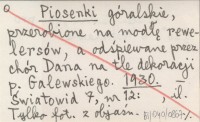 Piosenki góralskie,
przerobione na modłę rewe-
lersów, a odśpiewane przez
chór Dana na tle dekoracji
p. Galewskiego. 1930. –
Światowid 7, nr 12: , il.
Tylko fot. z objaśn.